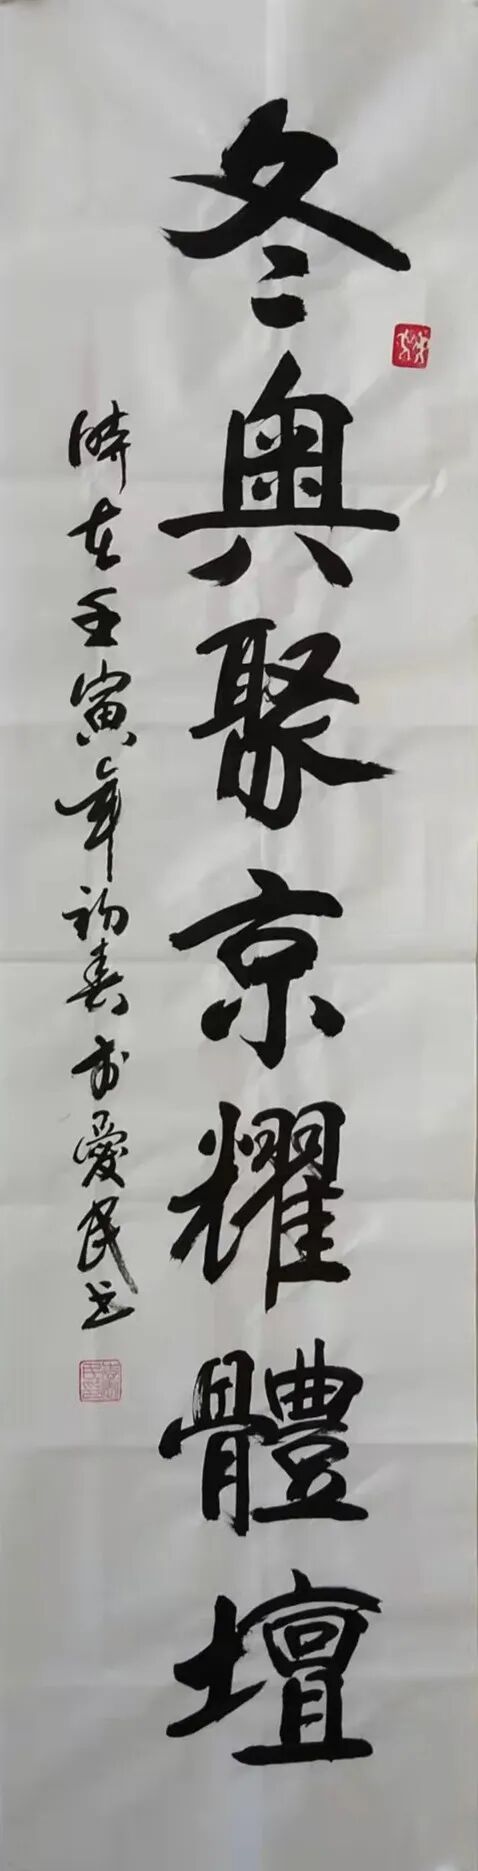 冬奥聚京耀體壇
時在壬寅年初春方愛民书